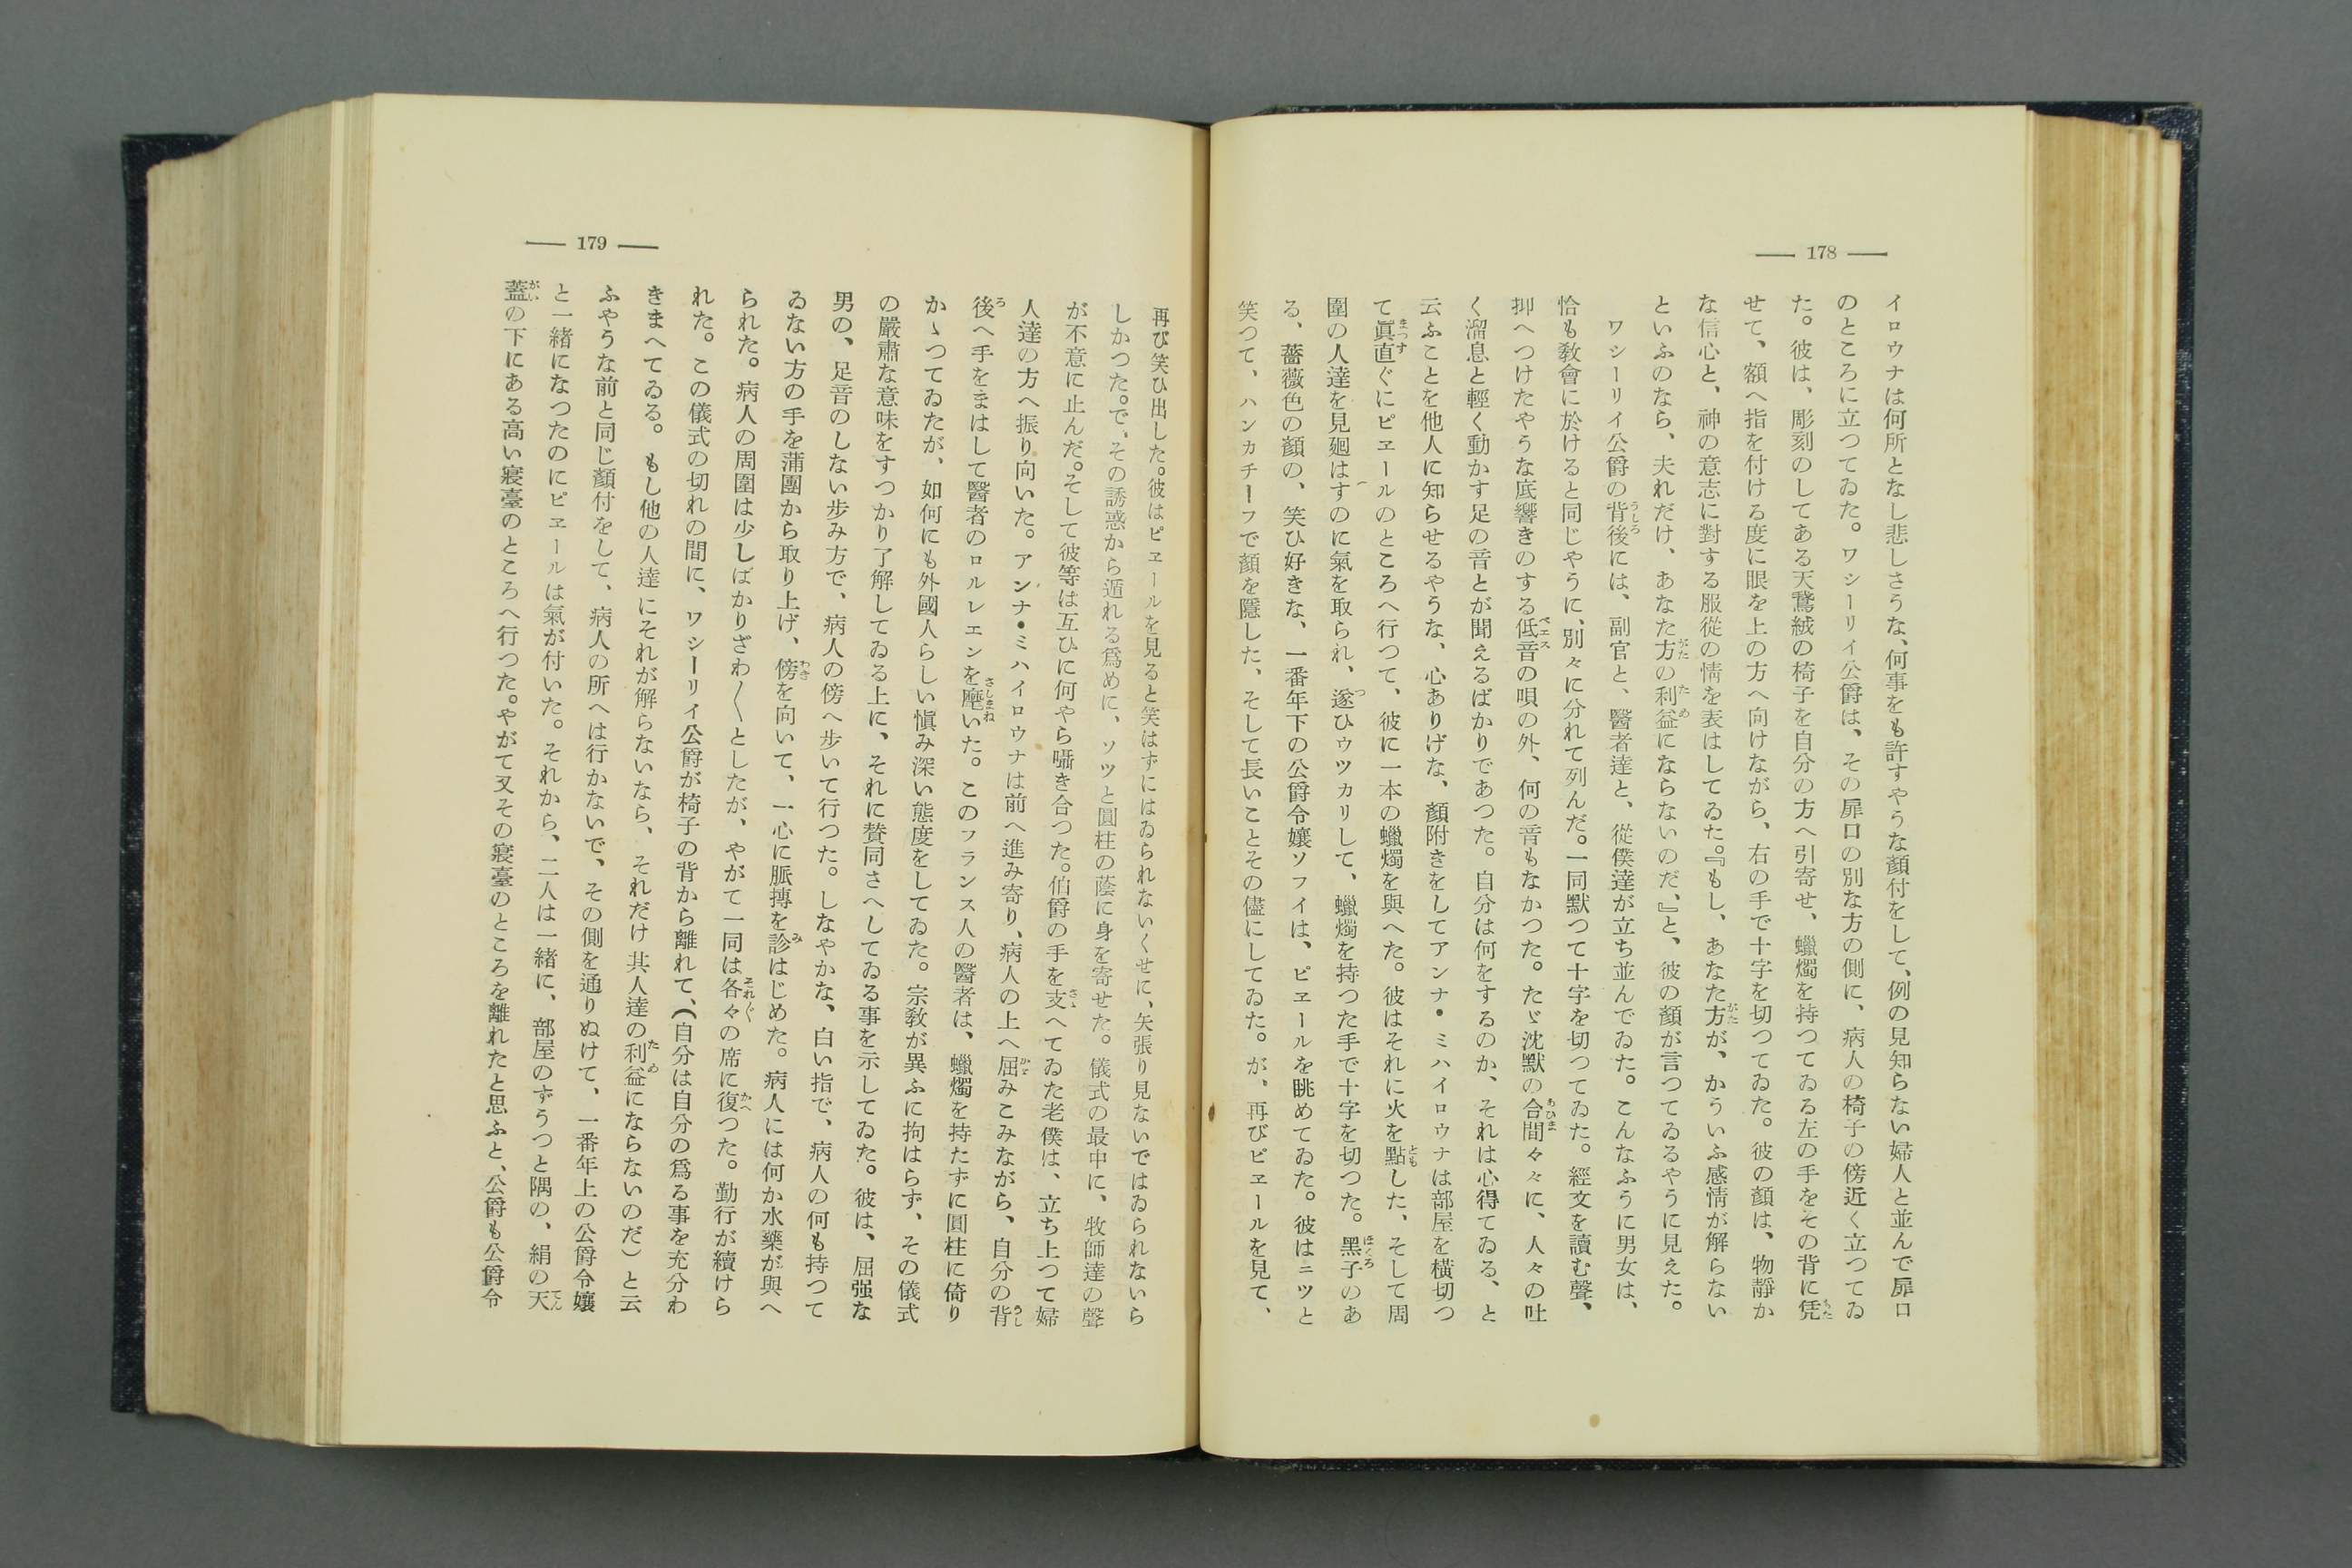 — 178 —
イロウナは何所となし悲しさうな、何事をも許すやうな顏付をして、例の見知らない婦人と並んで扉口
のところに立つてゐた。ワシーリイ公爵は、その扉口の別な方の側に、病人の椅子の傍近く立つてゐ
た。彼は、彫刻のしてある天鵞絨の椅子を自分の方へ引寄せ、蠟燭を持つてゐる左の手をその背に凭
せて、額へ指を付ける度に眼を上の方へ向けながら、右の手で十字を切つてゐた。彼の顏は、物靜か
な信心と、神の意志に對する服從の情を表はしてゐた。『もし、あなた方が、かういふ感情が解らない
といふのなら、夫れだけ、あなた方の利益にならないのだ、』と、彼の顏が言つてゐるやうに見えた。
ワシーリイ公爵の背後には、副官と、醫者達と、從僕達が立ち並んでゐた。こんなふうに男女は、
恰も敎會に於けると同じやうに、別々に分れて列んだ。一同默つて十字を切つてゐた。經文を讀む聲、
抑へつけたやうな底響きのする低音の唄の外、何の音もなかつた。たゞ沈默の合間々々に、人々の吐
く溜息と輕く動かす足の音とが聞えるばかりであつた。自分は何をするのか、それは心得てゐる、と
云ふことを他人に知らせるやうな、心ありげな、顏附きをしてアンナ・ミハイロウナは部屋を橫切つ
て眞直ぐにピエールのところへ行つて、彼に一本の蠟燭を與へた。彼はそれに火を點した、そして周
圍の人達を見廻はすのに氣を取られ、遂ひウツカリして、蠟燭を持つた手で十字を切つた。黑子のあ
る、薔薇色の顏の、笑ひ好きな、一番年下の公爵令孃ソフイは、ピエールを眺めてゐた。彼はニツと
笑つて、ハンカチーフで顏を隱した、そして長いことその儘にしてゐた。が、再びピエールを見て、
— 179 —
再び笑ひ出した。彼はピエールを見ると笑はずにはゐられないくせに、矢張り見ないではゐられないら
しかつた。で、その誘惑から遁れる爲めに、ソツと圓柱の蔭に身を寄せた。儀式の最中に、牧師達の聲
が不意に止んだ。そして彼等は互ひに何やら囁き合つた。伯爵の手を支へてゐた老僕は、立ち上つて婦
人達の方へ振り向いた。アンナ・ミハイロウナは前へ進み寄り、病人の上へ屈みこみながら、自分の背
後へ手をまはして醫者のロルレエンを麾いた。このフランス人の醫者は、蠟燭を持たずに圓柱に倚り
かゝつてゐたが、如何にも外國人らしい愼み深い態度をしてゐた。宗敎が異ふに拘はらず、その儀式
の嚴肅な意味をすつかり了解してゐる上に、それに賛同さへしてゐる事を示してゐた。彼は、屈强な
男の、足音のしない步み方で、病人の傍へ步いて行つた。しなやかな、白い指で、病人の何も持つて
ゐない方の手を蒲團から取り上げ、傍を向いて、一心に脈搏を診はじめた。病人には何か水藥が與へ
られた。病人の周圍は少しばかりざわ〱としたが、やがて一同は各々の席に復つた。勤行が續けら
れた。この儀式の切れの間に、ワシーリイ公爵が椅子の背から離れて、（自分は自分の爲る事を充分わ
きまへてゐる。もし他の人達にそれが解らないなら、それだけ其人達の利益にならないのだ）と云
ふやうな前と同じ顏付をして、病人の所へは行かないで、その側を通りぬけて、一番年上の公爵令孃
と一緖になつたのにピエールは氣が付いた。それから、二人は一緖に、部屋のずうつと隅の、絹の天
蓋の下にある高い寢臺のところへ行つた。やがて又その寢臺のところを離れたと思ふと、公爵も公爵令